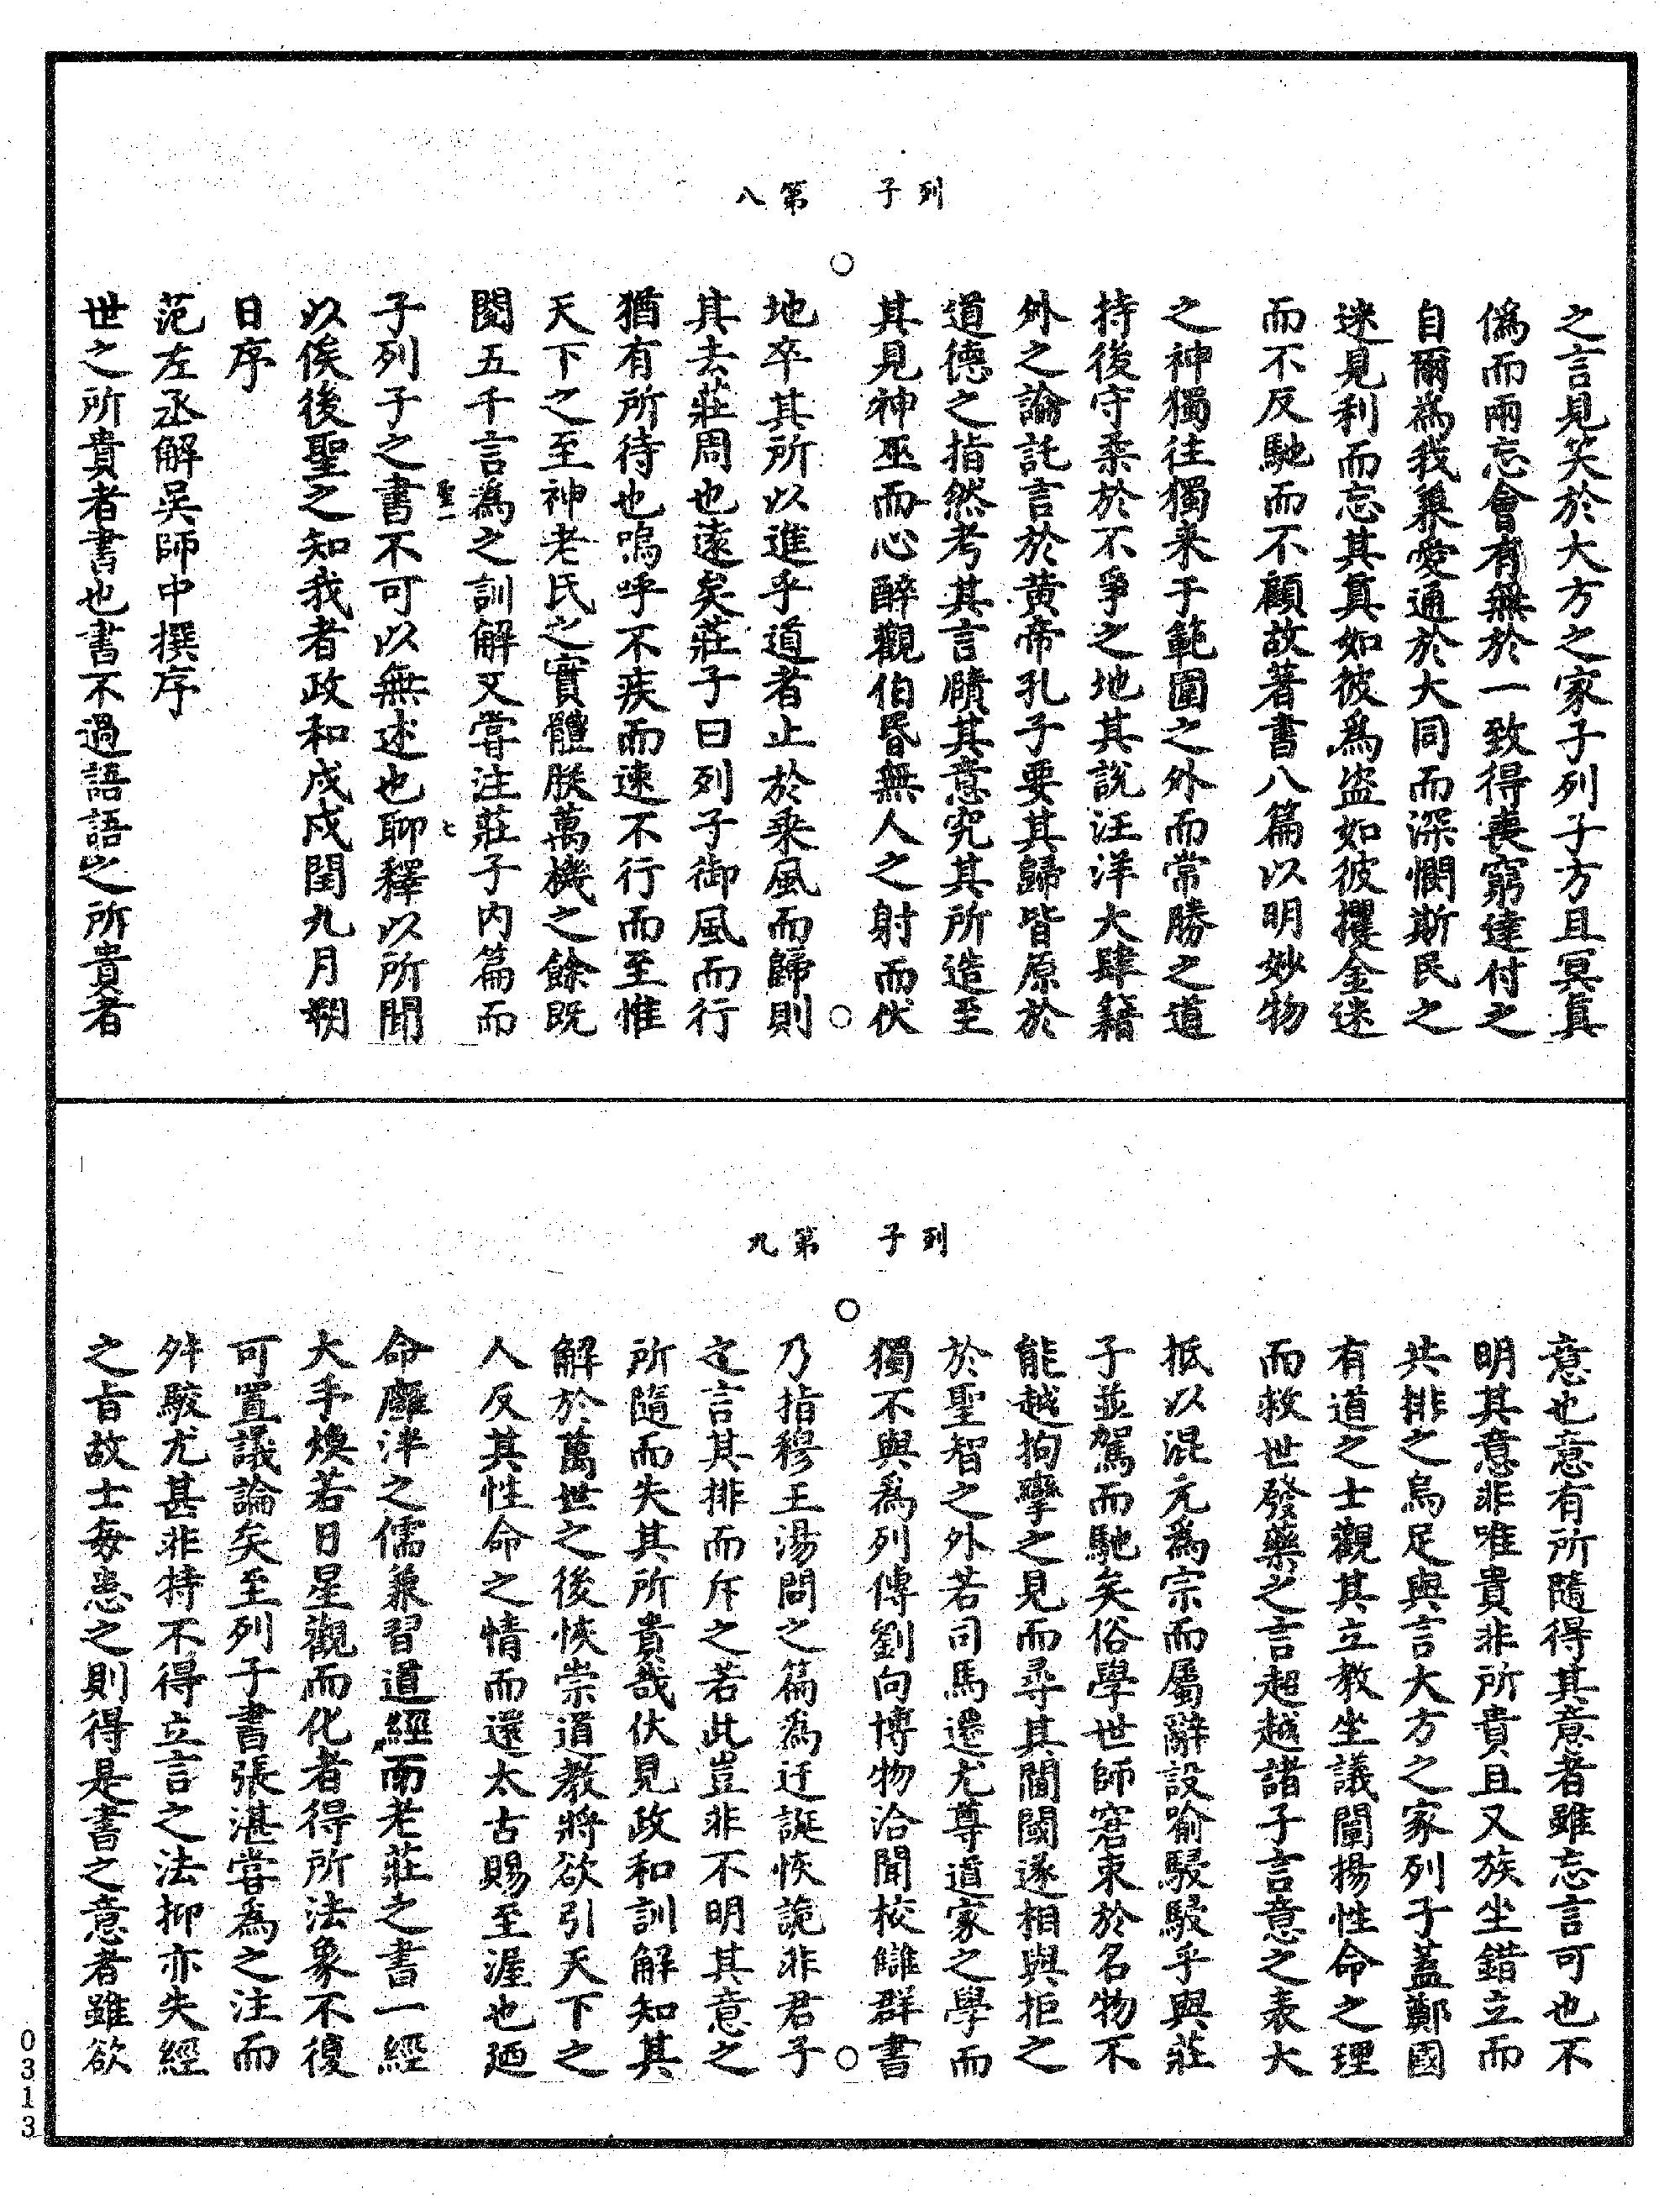 列子 第八
之言見笑於大方之家子列子方且冥真
僞而兩忘會有無於一致得喪窮達付之
自爾為我兼愛通於大同而深憫斯民之
迷見利而忘其真如彼爲盜如彼攫金迷
而不反馳而不顧故著書八篇以明妙物
之神獨往獨来于範圍之外而常勝之道
持後守柔於不爭之地其說汪洋大肆籍
外之論託言於黄帝孔子要其歸皆原於
道德之指然考其言賾其意究其所造至
其見神巫而心醉觀伯昏無人之射而伏
地卒其所以進乎道者止於乘風而歸則
其去莊周也遠矣莊子曰列子御風而行
猶有所待也嗚呼不疾而速不行而至惟
天下之至神老氏之實體朕萬機之餘既
閱五千言為之訓解又嘗注莊子內篇而
聖一 七
子列子之書不可以無述也聊釋以所聞
以俟後聖之知我者政和戊戌閏九月朔
日序
范左丞解吳師中撰序
世之所貴者書也書不過語語之所貴者
列子 第九
意也意有所隨得其意者雖忘言可也不
明其意非唯貴非所貴且又族坐錯立而
共排之烏足與言大方之家列子蓋鄭國
有道之士觀其立教坐議闡揚性命之理
而救世發藥之言超越諸子言意之表大
抵以混元為宗而屬辭設喻駸駸乎與莊
子並駕而馳矣俗學世師窘束於名物不
能越拘攣之見而尋其閫閾遂相與拒之
於聖智之外若司馬遷尤尊道家之學而
獨不與爲列傳劉向博物洽聞校讎群書
乃指穆王湯問之篇為迂誕恢詭非君子
之言其排而斥之若此豈非不明其意之
所隨而失其所貴哉伏見政和訓解知其
解於萬世之後恢崇道教將欲引天下之
人反其性命之情而還太古賜至渥也廼
命廱泮之儒兼習道經而老莊之書一經
大手煥若日星觀而化者得所法象不復
可置議論矣至列子書張湛嘗為之注而
舛駮尤甚非特不得立言之法抑亦失經
之旨故士每患之則得是書之意者雖欲
0313